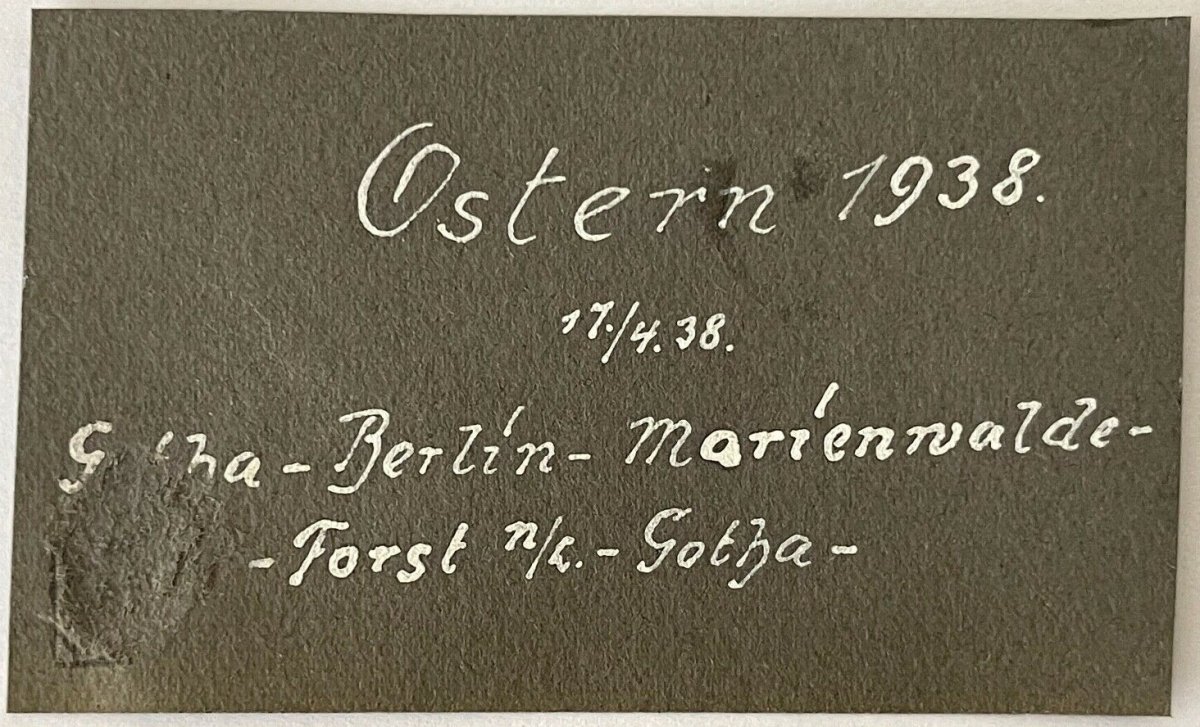 Ostern 1938.
17./4.38.
Gotha - Berlin - Marienwalde -
- Forst n/L. - Gotha -